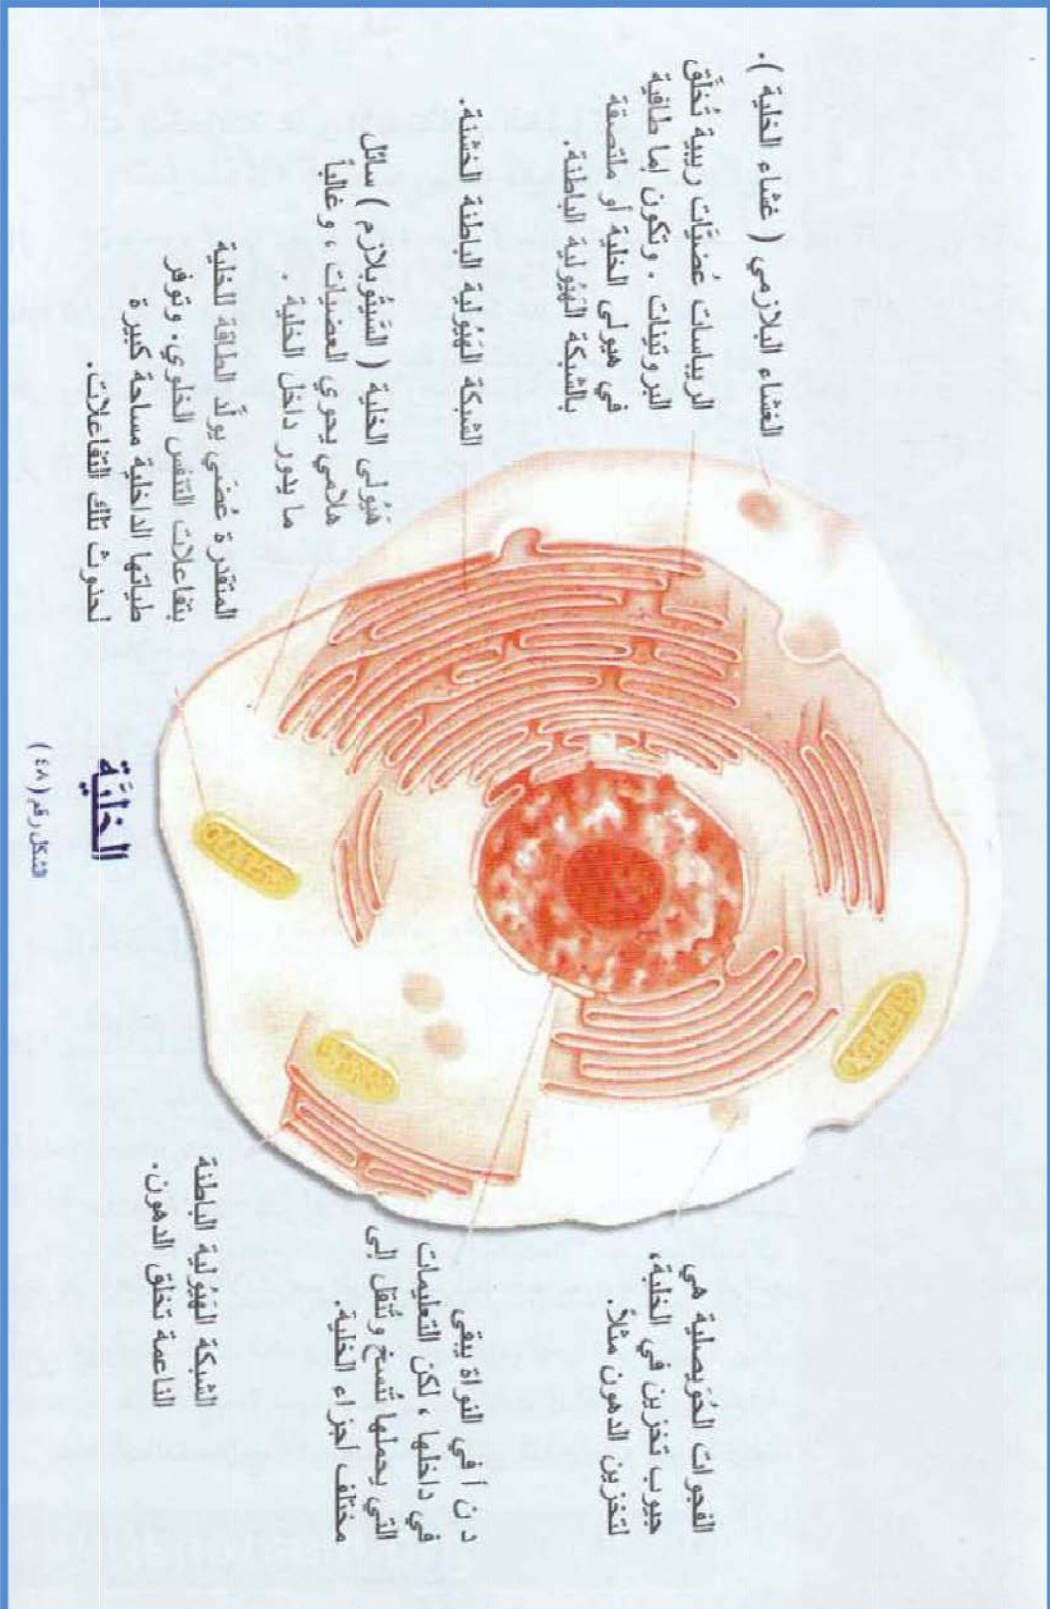 الغشاء البلازمي ( غشاء الخلية ).
الريباسات عُضيّات ريبية تُخلّق
البروتينات . وتكون إما طافية
في هيولى الخلية أو ملتصقة
بالشبكة الهَيُولية الباطنة.
الشبكة الهَيُولية الباطنة الخشنة.
هَيُولى الخلية ( السَّيتُوبلازم ) سائل
هلامي يحوي العضيات ، وغالباً
ما يدور داخل الخلية .
المتقدرة عُضَي يولّد الطاقة للخلية
بتفاعلات التنفس الخلوي. وتوفر
طياتها الداخلية مساحة كبيرة
لحدوث تلك التفاعلات.
الفجوات الحُوَيصلية هي
جيوب تخزين في الخلية،
لتخزين الدهون مثلاً.
د ن أ في النواة يبقى
في داخلها ، لكن التعليمات
التي يحملها تُنسخ وتُنقل إلى
مختلف أجزاء الخلية.
الشبكة الهَيُولية الباطنة
الناعمة تخلق الدهون.
الخليَّة
الشكل رقم ( ٤٨ )